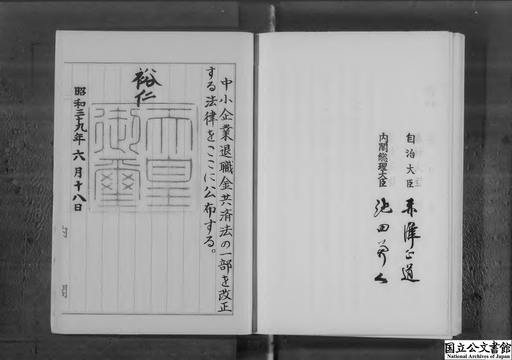 中小企業退職金共済法の一部を改正
する法律をここに公布する。
裕仁
天皇
御璽
昭和三十九年六月十八日
内閣総理大臣
池田勇人
自治大臣
赤澤正道
国立公文書館
National Archives of Japan